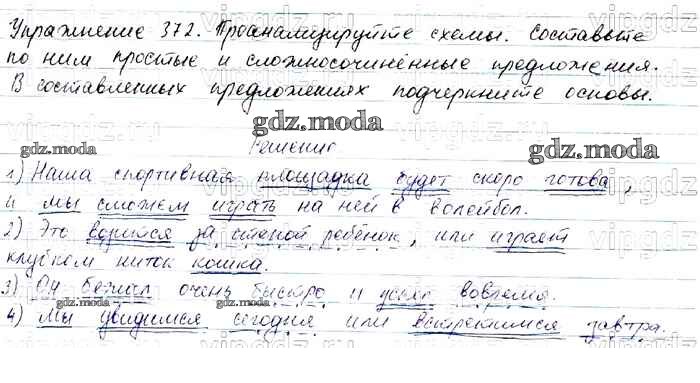 Упражнение 372. Проанализируйте схемы. Составьте
по ним простые и сложносочинённые предложения.
В составленных предложениях подчеркните основы.
gdz.moda
Решение
gdz.moda
1) Наша спортивная площадка будет скоро готова,
и мы сможем играть на ней в волейбол.
2) Это возится за стеной ребёнок, или играет
клубком ниток кошка.
3) Он бежал очень быстро и успел вовремя.
gdz.moda
gdz.moda
4) Мы увидимся сегодня или встретимся завтра.